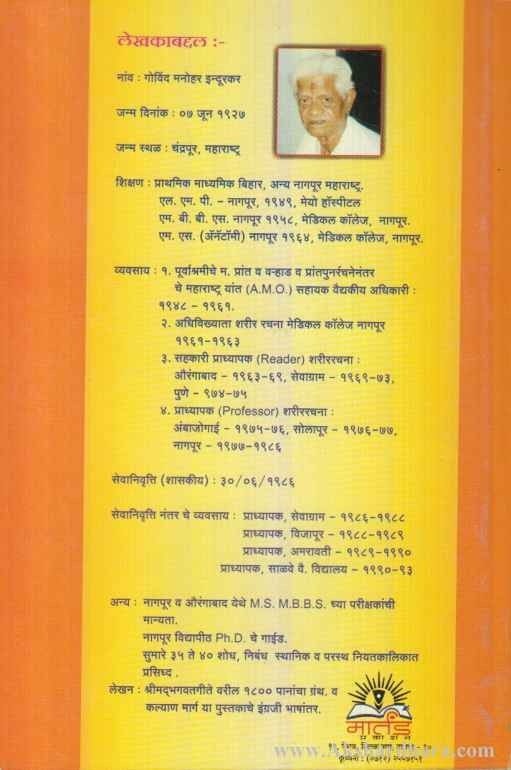 लेखकाबद्दल :-
नांव : गोविंद मनोहर इन्दूरकर
जन्म दिनांक : ०७ जून १९२७
जन्म स्थळ : चंद्रपूर, महाराष्ट्र
शिक्षण : प्राथमिक माध्यमिक बिहार, अन्य नागपूर महाराष्ट्र.
एल. एम. पी. - नागपूर, १९४९, मेयो हॉस्पीटल
एम. बी. बी. एस. नागपूर १९५८, मेडिकल कॉलेज, नागपूर.
एम. एस. (ॲनॅटॉमी) नागपूर १९६४, मेडिकल कॉलेज, नागपूर.
व्यवसाय : १. पूर्वाश्रमीचे म. प्रांत व वऱ्हाड व प्रांतपुनर्रचनेनंतर
चे महाराष्ट्र यांत (A.M.O.) सहायक वैद्यकीय अधिकारी :
१९४८ - १९६१.
२. अधिविख्याता शरीर रचना मेडिकल कॉलेज नागपूर
१९६१-१९६३
३. सहकारी प्राध्यापक (Reader) शरीररचना :
औरंगाबाद - १९६३-६९, सेवाग्राम - १९६९-७३,
पुणे - ९७४-७५
४. प्राध्यापक (Professor) शरीररचना :
अंबाजोगाई - १९७५-७६, सोलापूर - १९७६-७७,
नागपूर - १९७७-१९८६
सेवानिवृत्ति (शासकीय) : ३०/०६/१९८६
सेवानिवृत्ति नंतर चे व्यवसाय : प्राध्यापक, सेवाग्राम - १९८६-१९८८
प्राध्यापक, विजापूर - १९८८-१९८९
प्राध्यापक, अमरावती - १९८९-१९९०
प्राध्यापक, साळवे वै. विद्यालय - १९९०-९३
अन्य : नागपूर व औरंगाबाद येथे M.S. M.B.B.S. च्या परीक्षकांची
मान्यता.
नागपूर विद्यापीठ Ph.D. चे गाईड.
सुमारे ३५ ते ४० शोध, निबंध स्थानिक व परस्थ नियतकालिकात
प्रसिध्द .
लेखन : श्रीमद्‌भगवतगीते वरील १८०० पानांचा ग्रंथ. व
कल्याण मार्ग या पुस्तकाचे इंग्रजी भाषांतर.
मार्तंड
प्रकाशन